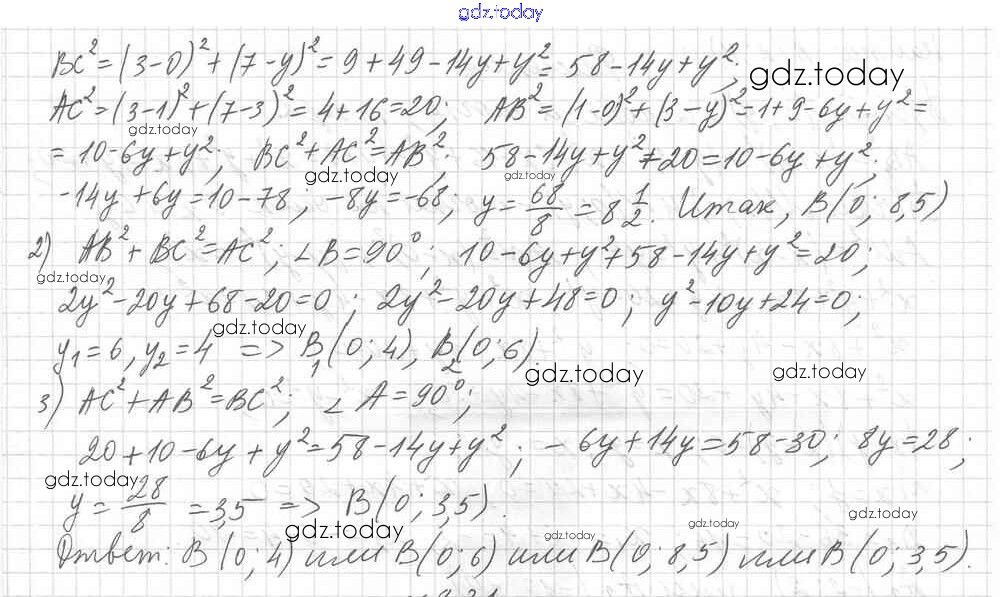 gdz.today
BC² = (3-0)² + (7-y)² = 9 + 49 - 14y + y² = 58 - 14y + y²;
gdz.today
AC² = (3-1)² + (7-3)² = 4 + 16 = 20; AB² = (1-0)² + (3-y)² = 1 + 9 - 6y + y² =
gdz.today
= 10 - 6y + y²; BC² + AC² = AB²; 58 - 14y + y² + 20 = 10 - 6y + y²;
gdz.today gdz.today
-14y + 6y = 10 - 78; -8y = -68; y = 68/8 = 8 1/2. Итак, B(0; 8,5)
2) AB² + BC² = AC²; ∠B = 90°; 10 - 6y + y² + 58 - 14y + y² = 20;
gdz.today
2y² - 20y + 68 - 20 = 0; 2y² - 20y + 48 = 0; y² - 10y + 24 = 0;
gdz.today
y₁ = 6, y₂ = 4 => B₁(0; 4), B₂(0; 6)
gdz.today gdz.today
3) AC² + AB² = BC²; ∠A = 90°;
20 + 10 - 6y + y² = 58 - 14y + y²; -6y + 14y = 58 - 30; 8y = 28;
gdz.today
y = 28/8 = 3,5 => B(0; 3,5).
gdz.today gdz.today gdz.today gdz.today
Ответ: B(0; 4) или B(0; 6) или B(0; 8,5) или B(0; 3,5).